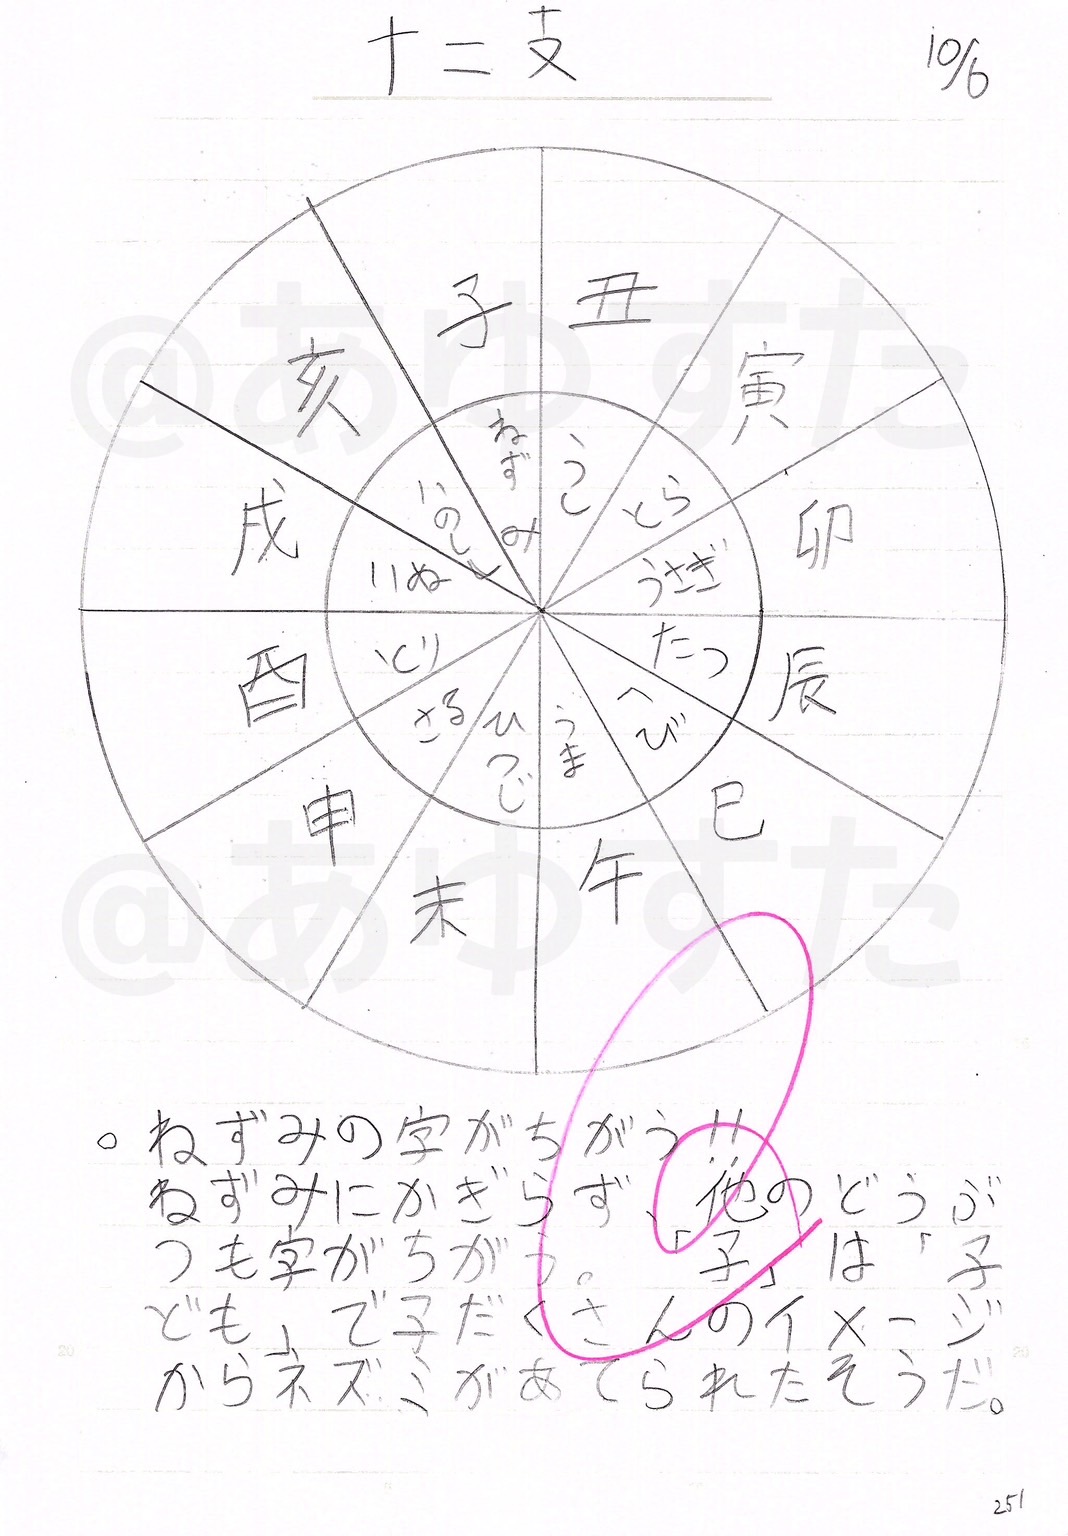 十二支
10/6
子
丑
寅
卯
辰
巳
午
未
申
酉
戌
亥
ねずみ
うし
とら
うさぎ
たつ
へび
うま
ひつじ
さる
とり
いぬ
いのしし
@あゆすた
@あゆすた
。ねずみの字がちがう!!
ねずみにかぎらず、他のどうぶ
つも字がちがう。「子」は「子
ども」で子だくさんのイメージ
からネズミがあてられたそうだ。
20
20
251